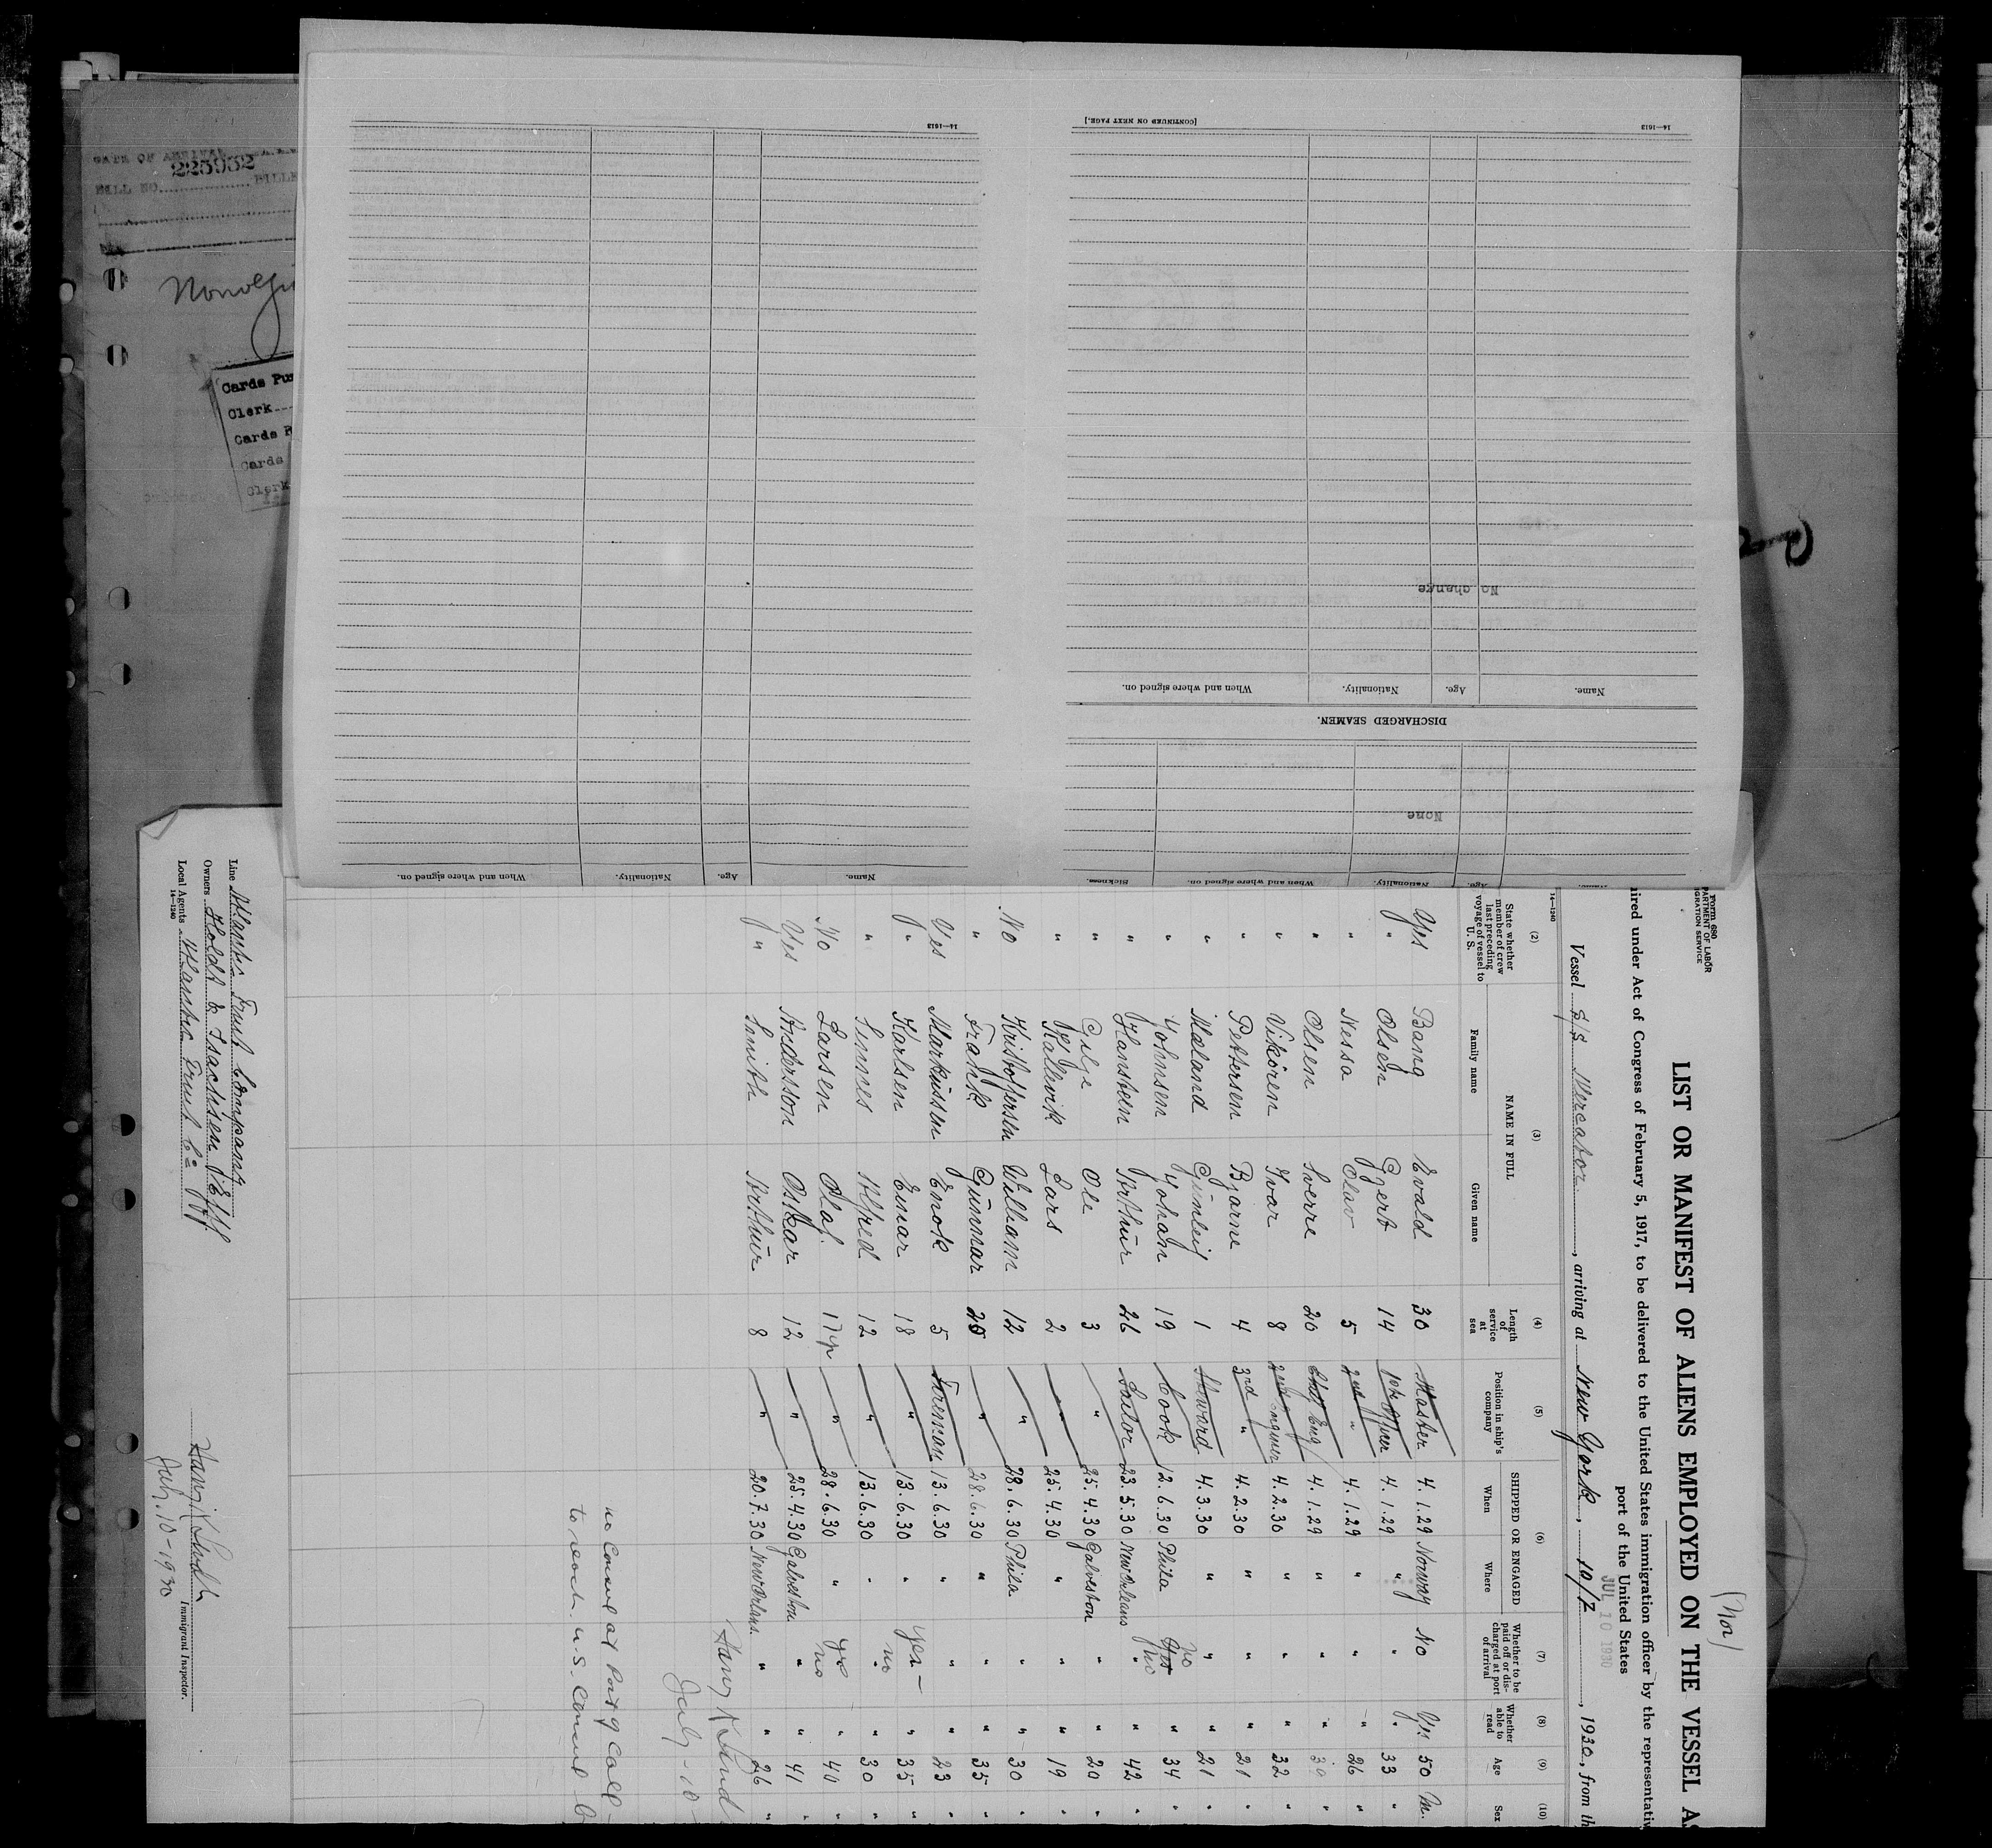 225952
BILL NO.
Cards
Clerk
Cards
Cards
Clerk
14—1613
[CONTINUED ON NEXT PAGE.]
14—1613
No change
Name. Age. Nationality. When and where signed on.
DISCHARGED SEAMEN.
None
Name. Age. Nationality. When and where signed on. Sickness.
Name. Age. Nationality. When and where signed on.
(Nor)
Form 680
LIST OR MANIFEST OF ALIENS EMPLOYED ON THE VESSEL AS
ired under Act of Congress of February 5, 1917, to be delivered to the United States immigration officer by the representativ
port of the United States
JUL 10 1930
Vessel S/S Mercator, arriving at New York, 10/7, 1930, from th
14—1240
(2) (3) (4) (5) (6) (7) (8) (9) (10)
State whether member of crew last preceding voyage of vessel to U. S.
NAME IN FULL
Family name Given name
Length of service at sea
Position in ship's company
SHIPPED OR ENGAGED
When Where
Whether to be paid off or discharged at port of arrival
Whether able to read
Age
Sex
Yes Bang Evald 30 Master 4.1.29 Norway No Yes 50 M.
" Olsen Gjert 14 1st Officer 4.1.29 " " " 33 "
" Nesse Olav 5 2nd " 4.1.29 " " " 26 "
" Olsen Sverre 20 Chief Eng 4.1.29 " " " 39 "
" Vikören Ivar 8 2nd Engineer 4.2.30 " " " 32 "
" Pettersen Bjarne 4 3rd " 4.2.30 " " " 21 "
" Mæland Gunleif 1 Steward 4.3.30 " " " 21 "
" Johnsen Johan 19 Cook 12.6.30 Phila Yes No " 34 "
" Hansteen Arthur 26 Sailor 23.5.30 New Orleans " No " 42 "
" Gilje Ole 3 " 25.4.30 Galveston " " 20 "
" Kallevik Lars 2 " 25.4.30 " " " 19 "
No Kristoffersen William 12 " 28.6.30 Phila " " 30 "
" Frank Gunnar 25 " 28.6.30 " " " 35 "
Yes Markussen Enok 5 Foreman 13.6.30 " " " 23 "
" Karlsen Einar 18 " 13.6.30 " yes " 35 "
" Sinnes Alfred 12 " 13.6.30 " no " 30 "
No Larsen Olaf. 17 " 28.6.30 " yes no " 40 "
Yes Andersson Oskar 12 " 25.4.30 Galveston " " 41 "
" Smith Arthur 8 " 20.7.30 New Orleans. " " 26 "
July - 10 -
no Consul at Port of Call -
to reach U.S. Consul
Line Atlantic Fruit Company
Owners Holdt & Isachsen
Local Agents Atlantic Fruit Co
14—1240
July 10-1930
Immigrant Inspector.